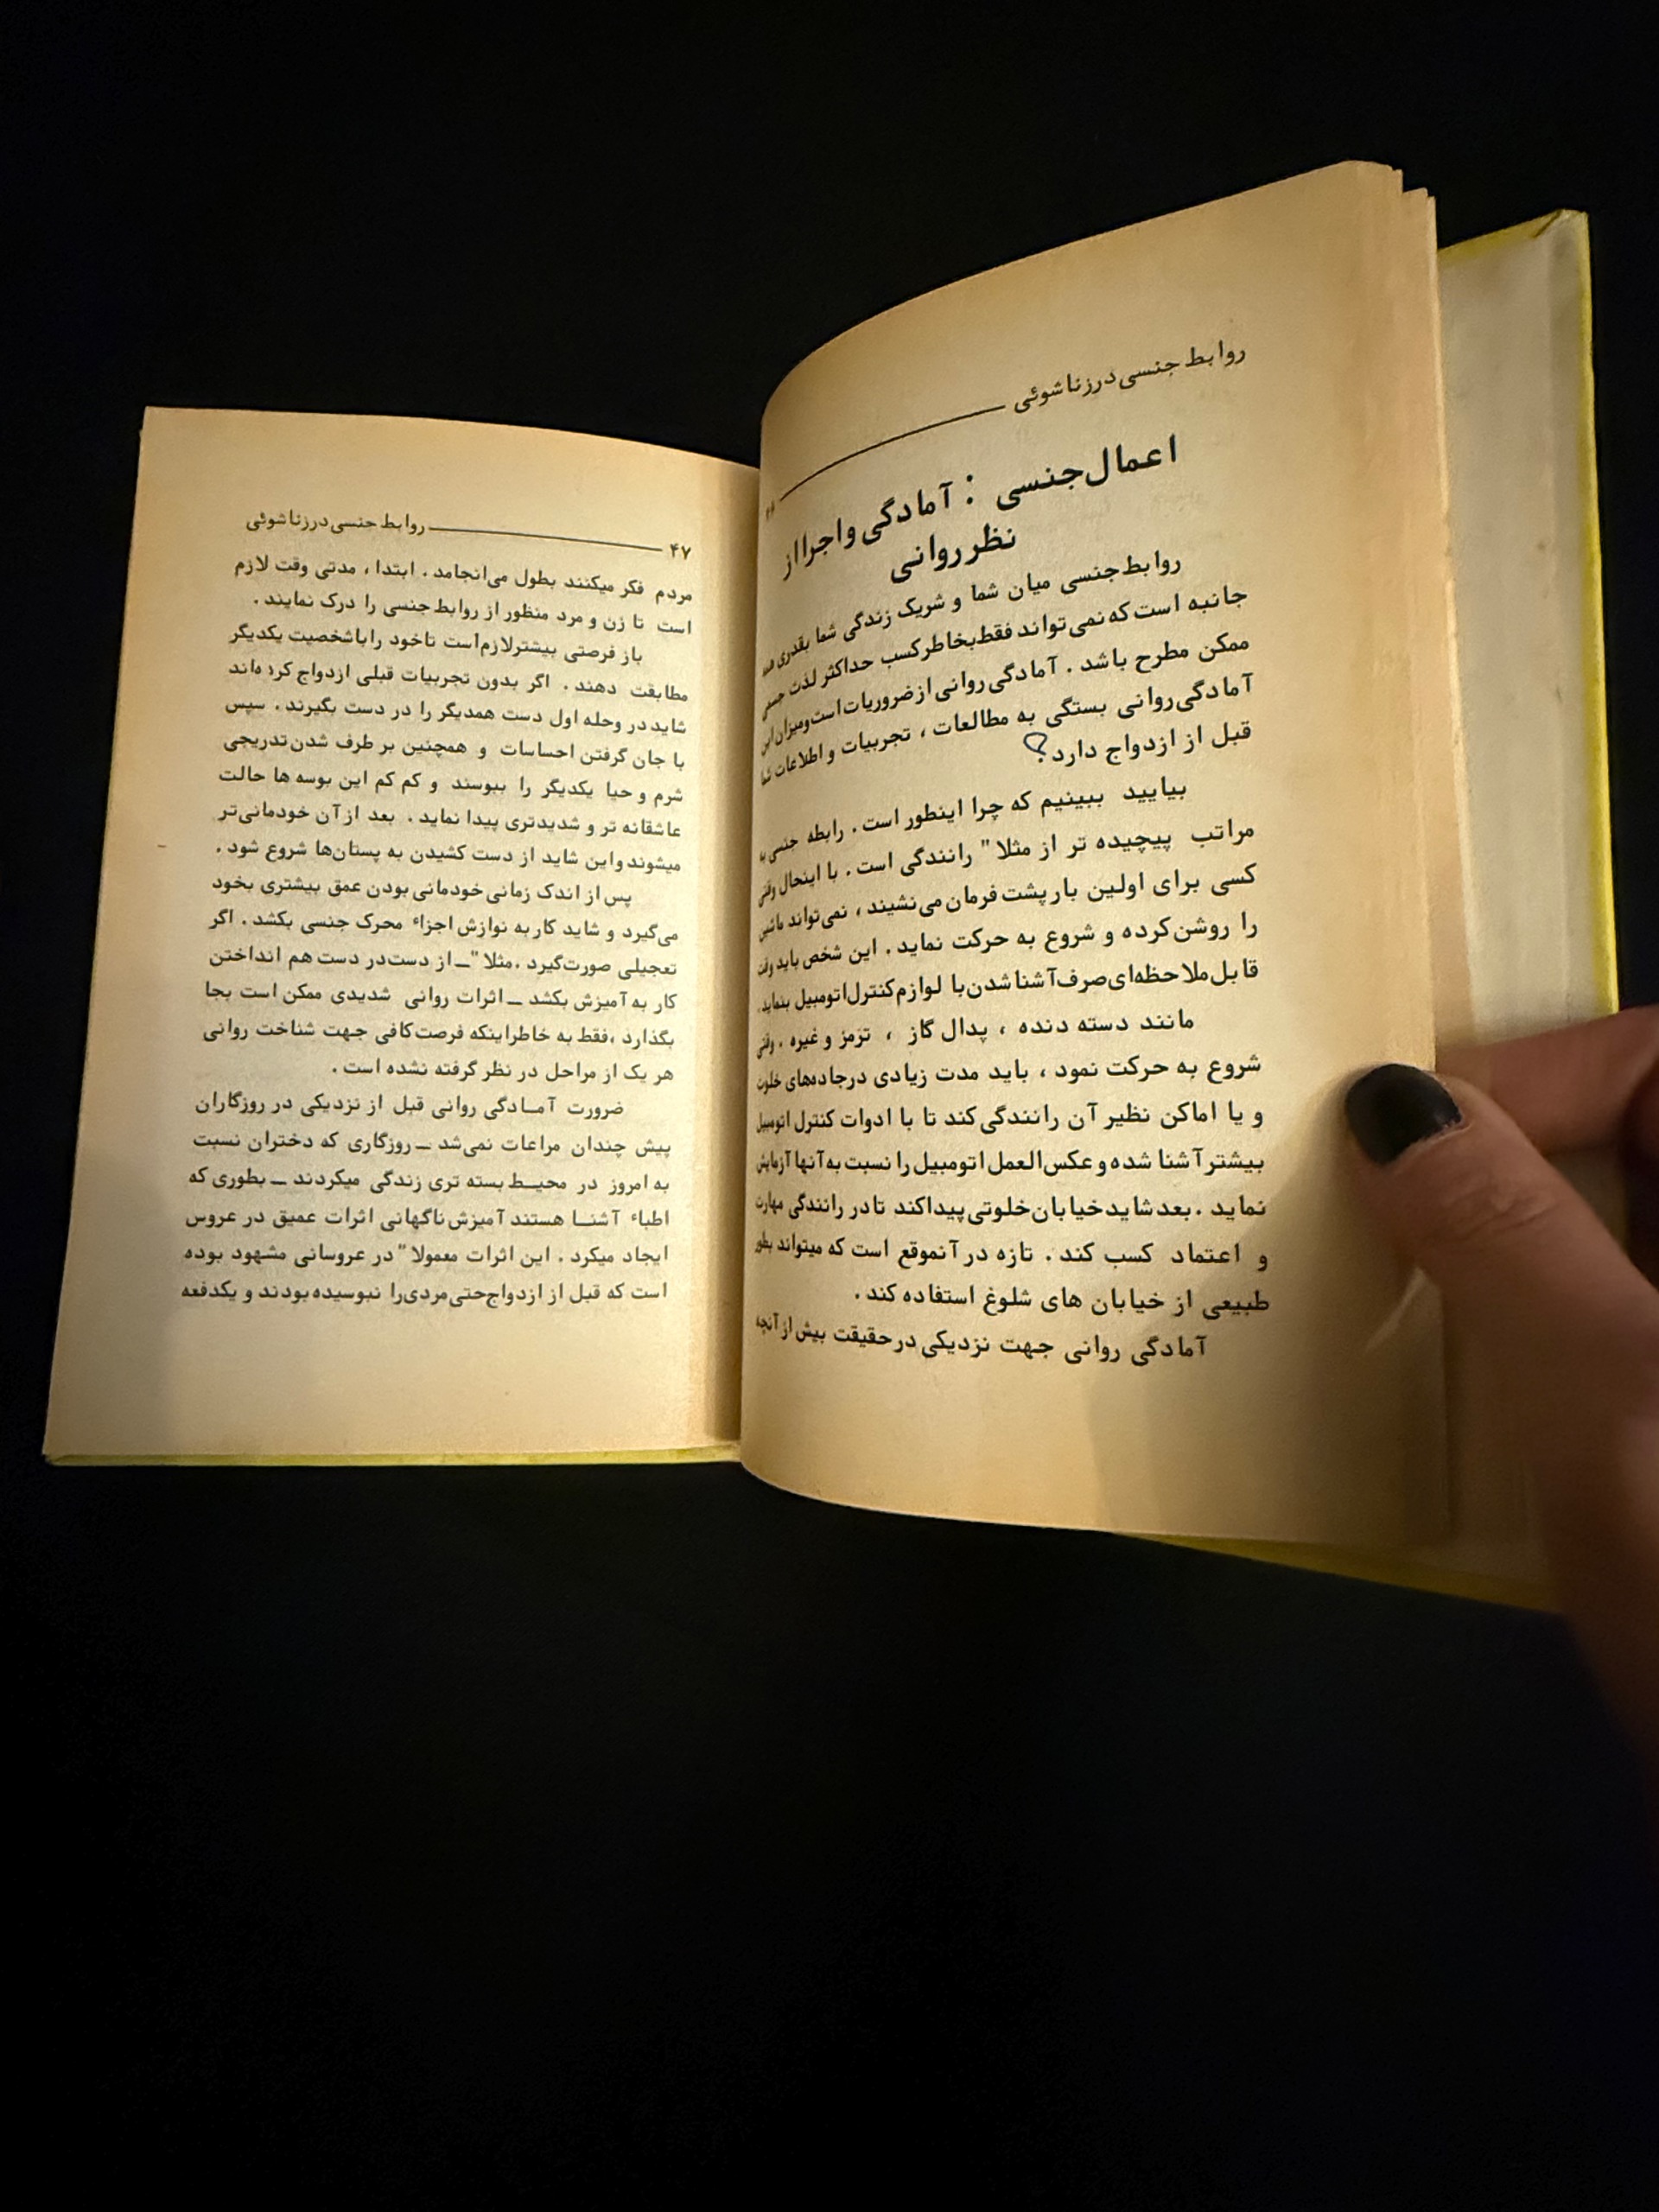 روابط جنسی درزناشوئی
اعمال جنسی : آمادگی واجرا از
نظر روانی
روابط جنسی میان شما و شریک زندگی شما بقدری همه
جانبه است که نمی‌تواند فقط بخاطر کسب حداکثر لذت جسمی
ممکن مطرح باشد . آمادگی روانی از ضروریات است ومیزان این
آمادگی روانی بستگی به مطالعات ، تجربیات و اطلاعات شما
قبل از ازدواج دارد؟
بیایید ببینیم که چرا اینطور است . رابطه جنسی به
مراتب پیچیده تر از مثلا" رانندگی است . با اینحال وقتی
کسی برای اولین بار پشت فرمان می‌نشیند ، نمی‌تواند ماشین
را روشن کرده و شروع به حرکت نماید . این شخص باید وقت
قابل ملاحظه‌ای صرف آشنا شدن با لوازم کنترل اتومبیل بنماید.
مانند دسته دنده ، پدال گاز ، ترمز و غیره . وقتی
شروع به حرکت نمود ، باید مدت زیادی درجاده‌های خلوت
و یا اماکن نظیر آن رانندگی کند تا با ادوات کنترل اتومبیل
بیشتر آشنا شده و عکس‌العمل اتومبیل را نسبت به آنها آزمایش
نماید . بعد شاید خیابان خلوتی پیدا کند تا در رانندگی مهارت
و اعتماد کسب کند . تازه در آنموقع است که میتواند بطور
طبیعی از خیابان های شلوغ استفاده کند .
آمادگی روانی جهت نزدیکی در حقیقت بیش از آنچه
۴۷ روابط جنسی درزناشوئی
مردم فکر میکنند بطول می‌انجامد . ابتدا ، مدتی وقت لازم
است تا زن و مرد منظور از روابط جنسی را درک نمایند .
باز فرصتی بیشتر لازم است تاخود را باشخصیت یکدیگر
مطابقت دهند . اگر بدون تجربیات قبلی ازدواج کرده‌اند
شاید در وحله اول دست همدیگر را در دست بگیرند . سپس
با جان گرفتن احساسات و همچنین بر طرف شدن تدریجی
شرم و حیا یکدیگر را ببوسند و کم کم این بوسه ها حالت
عاشقانه تر و شدیدتری پیدا نماید . بعد از آن خودمانی‌تر
میشوند واین شاید از دست کشیدن به پستان‌ها شروع شود .
پس از اندک زمانی خودمانی بودن عمق بیشتری بخود
می‌گیرد و شاید کار به نوازش اجزاء محرک جنسی بکشد . اگر
تعجیلی صورت گیرد .مثلا" ــ از دست در دست هم انداختن
کار به آمیزش بکشد ــ اثرات روانی شدیدی ممکن است بجا
بگذارد ،فقط به خاطر اینکه فرصت کافی جهت شناخت روانی
هر یک از مراحل در نظر گرفته نشده است .
ضرورت آمـادگی روانی قبل از نزدیکی در روزگاران
پیش چندان مراعات نمی‌شد ــ روزگاری که دختران نسبت
به امروز در محیـط بسته تری زندگی میکردند ــ بطوری که
اطباء آشنـا هستند آمیزش ناگهانی اثرات عمیق در عروس
ایجاد میکرد . این اثرات معمولا" در عروسانی مشهود بوده
است که قبل از ازدواج حتی مردی را نبوسیده بودند و یکدفعه